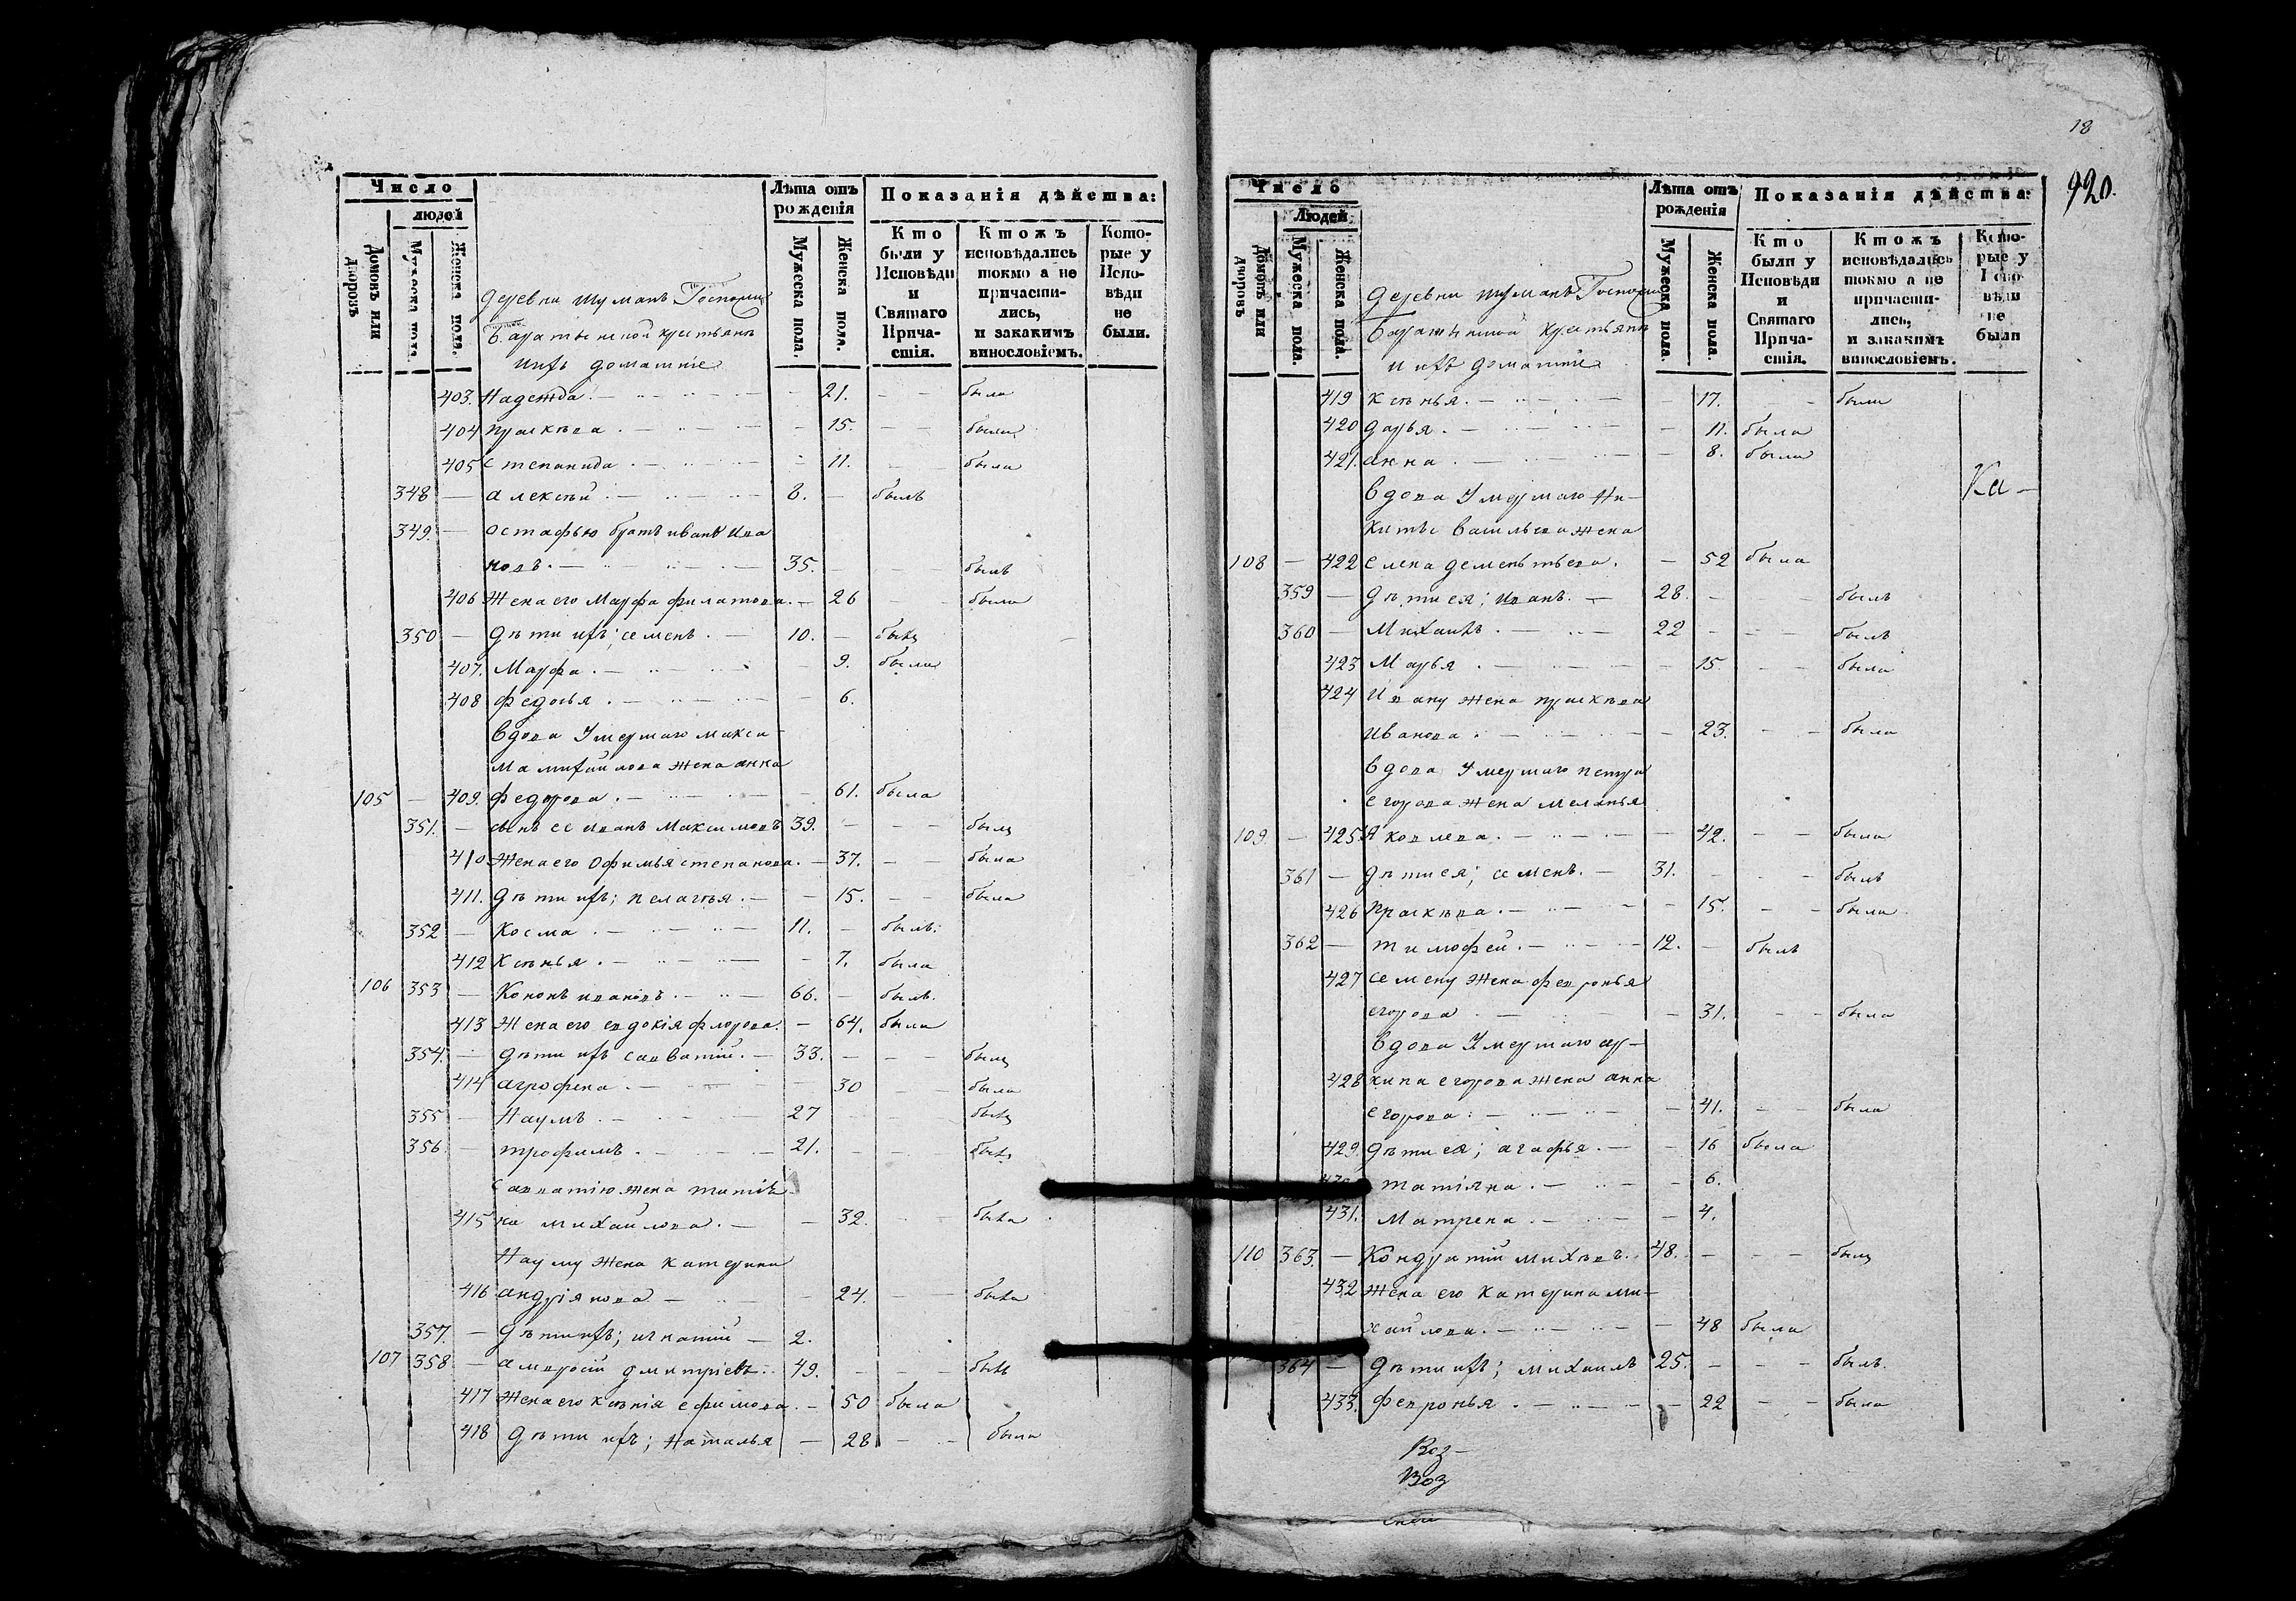 18
920.
Число
людей
Домовъ или дворовъ
Мужеска пола.
Женска пола.
деревни шуманъ Госпожи
Баратынской крестьяне
ихъ домашніе
Лѣта отъ рожденія
Мужеска пола.
Женска пола.
Показанія дѣйства:
Кто были у Исповѣди и Святаго Причастія.
Ктожъ исповѣдались токмо а не причастились, и закакимъ винословіемъ.
Которые у Исповѣди не были.
403. Надежда. — — 21. — — была
404 прасковa. — — 15. — — была
405 степанида. — — 11. — — была
348 — алексѣй. — 8. — былъ
349. — остафью братъ иванъ ива
новъ. — 35. — — былъ
406 жена его Марфа филатова. — 26 — — была
350 — дѣти ихъ; семенъ. — 10. — былъ
407. Марфа. — — 9. была
408 федосья. — — 6.
вдова Умершаго макси-
ма михайлова жена анна
105 — 409. федорова. — — 61. была
351. — сынъ ее иванъ Максимовъ 39. — — былъ
410 жена его офимья степанова. — 37. — была
411. дѣти ихъ; пелагья. — — 15. — — была
352 — косма. — 11. — былъ.
412 ксѣнья. — — 7. была
106 353 — Кононъ ивановъ. — 66. — былъ.
413 Жена его евдокія флорова. — 64. была
354. — дѣти ихъ савватій. — 33. — — былъ
414 агрофена. — — 30 — — была
355 — Наумъ. — 27 — — былъ
356. — трофимъ. — 21. — — былъ
савватію жена татія-
415 на михайлова. — — 32. — была
Науму жена катерина
416 андріянова — — 24. — — была
357. — дѣти ихъ; игнатій — 2.
107 358 — амвросій дмитріевъ. 49. — — былъ
417 Жена его ксѣнія ефимова. — 50 была
418 дѣти ихъ; Наталья — 28 — — была
Число
Людей
Домовъ или дворовъ
Мужеска пола.
Женска пола.
деревни шуманъ Госпожи
Баратынской крестьяне
и ихъ домашніе
Лѣта отъ рожденія
Мужеска пола.
Женска пола.
Показанія дѣйства:
Кто были у Исповѣди и Святаго Причастія.
Ктожъ исповѣдались токмо а не причастились, и закакимъ винословіемъ.
Которые у Исповѣди не были
419 ксѣнья. — — 17. — была
420 дарья. — — 11. была
421. анна. — — 8. была
вдова Умершаго Ни-
Ка-
киты васильева жена
108 — 422 елена дементьева. — 52 была
359 — дѣти ея; иванъ. — 28. — — былъ
360 — Михаилъ. — 22 — — былъ
423 Марья. — — 15. — — была
424 Ивану жена прасковa
иванова. — — 23. — — была
вдова Умершаго петра
егорова жена меланья
109 — 425 Яковлева. — — 42. — — была
361 — дѣти ея; семенъ. — 31. — — былъ
426 прасковa. — — 15. — — была
362 — тимофей. — 12. — былъ
427 семену жена февронья
егорова — — 31. — — была
вдова Умершаго ар-
428 хипа егорова жена анна
егорова. — — 41. — — была
429. дѣти ея; агафья. — — 16 была
татіяна. — — 6.
431. Матрена. — — 4.
110 363. — Кондратій михѣевъ. 48. — — былъ
432 жена его катерина ми-
хайлова. — — 48 была
364 — дѣти ихъ; михаилъ 25. — — былъ.
433. февронья. — — 22 — — была
Воз-
Воз